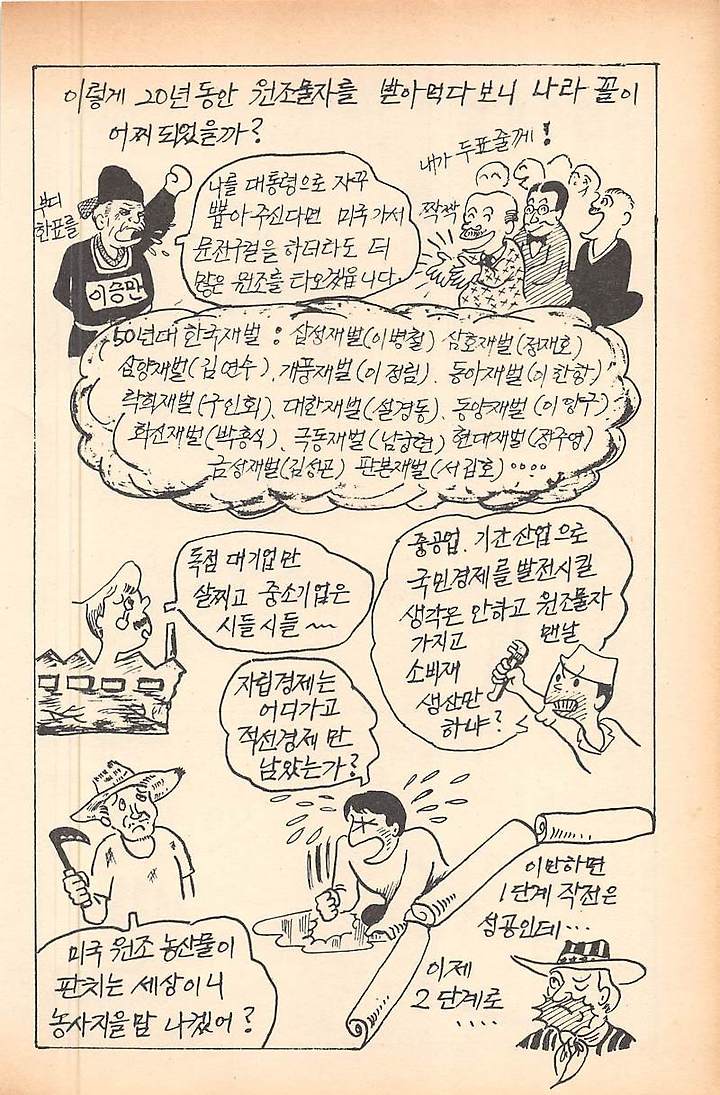 이렇게 20년동안 원조물자를 받아먹다보니 나라 꼴이
어찌 되었을까?
부디
한표를
이승만
나를 대통령으로 자꾸
뽑아주신다면 미국가서
문전구걸을 하더라도 더
많은 원조를 타오겠읍니다
내가 두표줄께!
짝짝
50년대 한국재벌 : 삼성재벌(이병철) 삼호재벌(정재호)
삼양재벌(김연수). 개풍재벌(이정림). 동아재벌(이한항)
락희재벌(구인회). 대한재벌(설경동). 동양재벌(이양구)
화신재벌(박흥식). 극동재벌(남궁현) 현대재벌(정주영)
금성재벌(김성곤) 판본재벌(서갑호)....
독점 대기업만
살찌고 중소기업은
시들시들~
중공업. 기간산업으로
국민경제를 발전시킬
생각은 안하고 원조물자
가지고 맨날
소비재
생산만
하냐?
자립경제는
어디가고
적선경제만
남았는가?
미국 원조 농산물이
판치는 세상이니
농사지을맘 나겠어?
이만하면
1단계 작전은
성공인데...
이제
2단계로
....